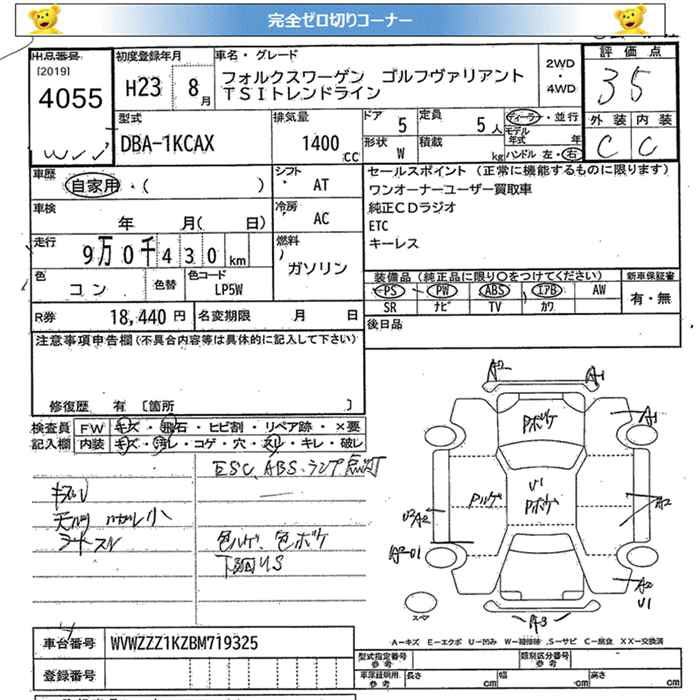 完全ゼロ切りコーナー
出品番号
[2019]
4055
初度登録年月
H23 8月
車名・グレード
フォルクスワーゲン ゴルフヴァリアント
TSIトレンドライン
2WD
・
4WD
評価点
35
外装 内装
C C
型式
DBA-1KCAX
排気量
1400 CC
ドア 5
定員 5人
形状 W
積載 kg
ディーラー・並行
モデル年式 年
ハンドル 左・右
車歴
自家用・( )
シフト AT
車検
年 月( 日)
冷房 AC
走行
9万0千430km
燃料
ガソリン
色
コン
色替
色コード
LP5W
R券 18,440 円
名変期限 月 日
セールスポイント (正常に機能するものに限ります)
ワンオーナーユーザー買取車
純正CDラジオ
ETC
キーレス
装備品(純正品に限り○をつけてください)
新車保証書
PS PW ABS エアB AW
SR ナビ TV カワ
有・無
後日品
注意事項申告欄(不具合内容等は具体的に記入して下さい)
修復歴 有 〔箇所 〕
検査員 FW キズ・飛石・ヒビ割・リペア跡・×要
記入欄 内装 キズ・汚れ・コゲ・穴・スレ・キレ・破レ
ESC、ABS、ランプ点灯
色ハゲ、色ボケ
下回りS
A2 A1
Pボケ
A1
U1
Pボケ
Pハゲ
U2A2
A2
A2
U1
スペア
A3
A-キズ E-エクボ U-凹み W-補修跡 S-サビ C-腐食 XX-交換済
車台番号 WVWZZZ1KZBM719325
登録番号
型式指定番号 参考
類別区分番号 参考
車庫証明用 参考
長さ cm
幅 cm
高さ cm